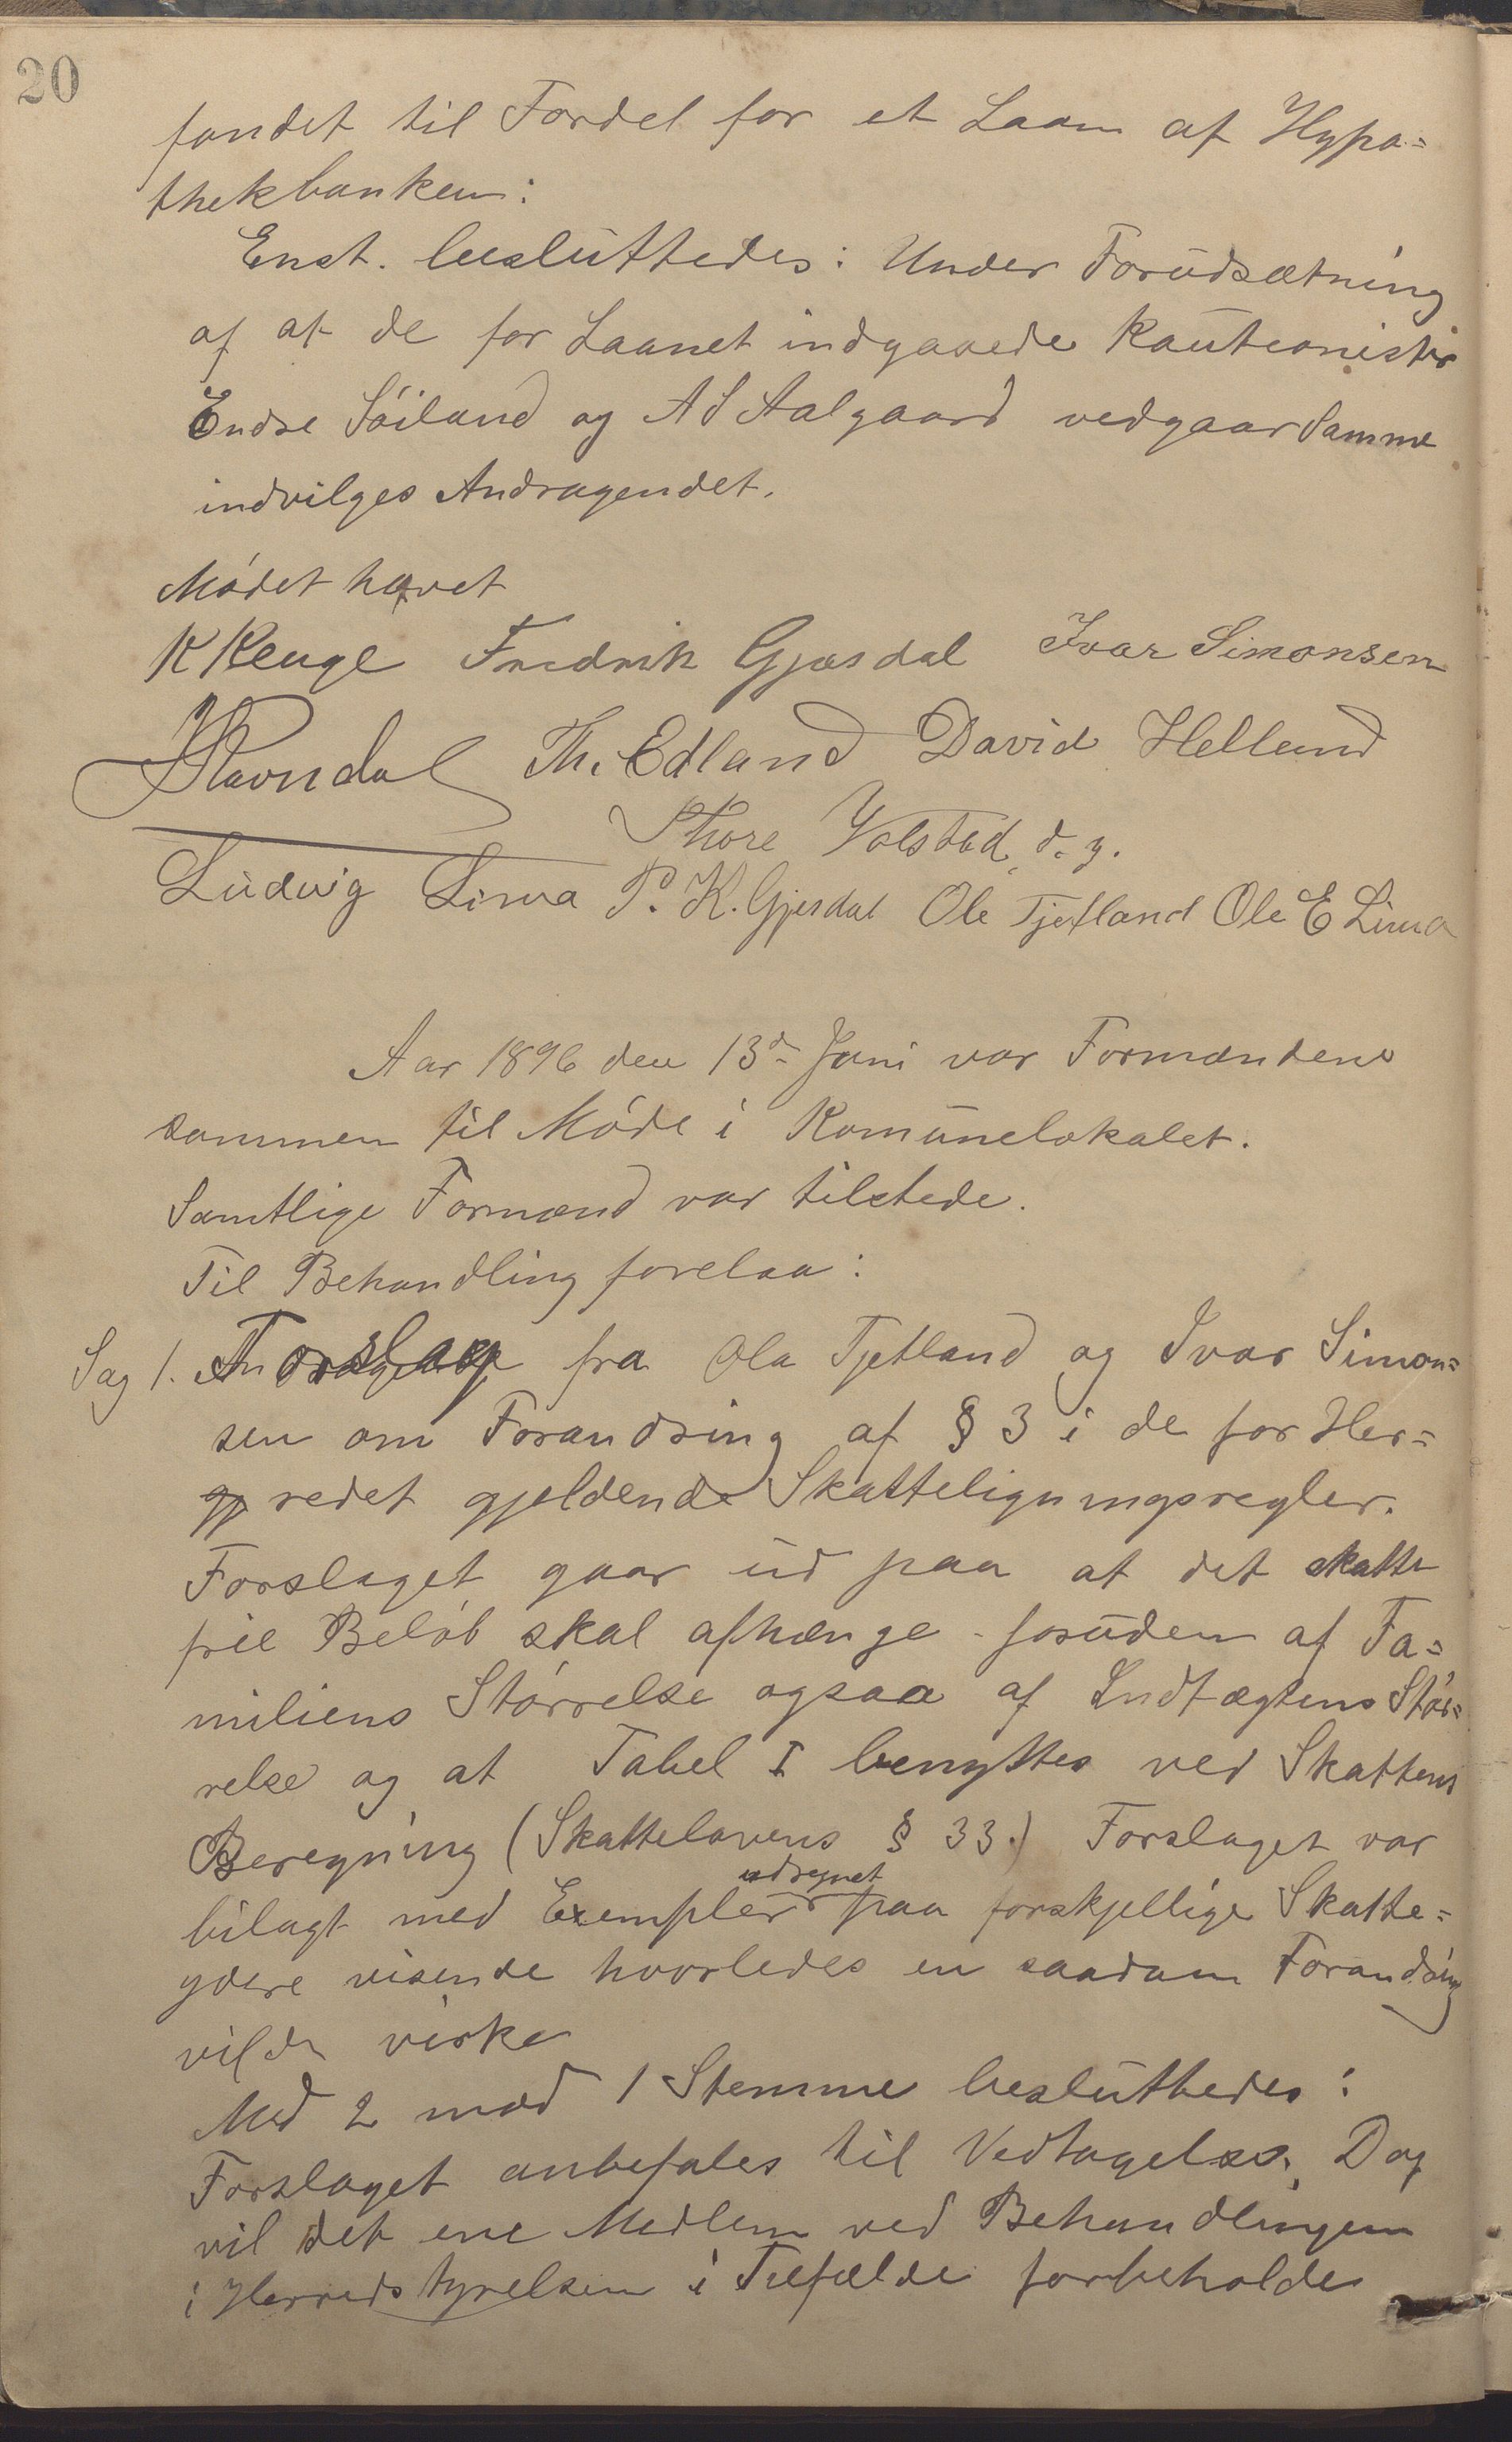 20
fondet til Fordel for et Laan af Hypo=
thekbanken:
Enst. besluttedes: Under Forudsætning
af at de for Laanet indgaaede Kautionister
Endse Söiland og A S Aalgaard vedgaar Samme
indvilges Andragendet.
Mödet hævet
K Kenge Fredrik Gjæsdal Ivar Simonsen
Th. Edland David Helland
Thore Volstad, d. y.
Ludvig Lima P. K. Gjesdal Ole Tjetland Ole E Lima
Aar 1896 den 13de Juni var Formændene
sammen til Möde i Komunelokalet.
Samtlige Formænd var tilstede.
Til Behandling forelaa:
Sag 1. Forslag fra Ola Tjetland og Ivar Simon=
sen om Forandring af § 3 i de for Her=
redet gjeldende Skatteligningsregler.
Forslaget gaar ud paa at det skatte
frie Belöb skal afhænge foruden af Fa=
miliens Störrelse ogsaa af Indtægtens Stör=
relse og at Tabel I benyttes ved Skattens
Beregning (Skattelovens § 33.) Forslaget var
udregnet
bilagt med Exempler paa forskjellige Skatte=
ydere visende hvorledes en saadan Forandring
vilde virke
Med 2 mod 1 Stemme besluttedes:
Forslaget anbefales til Vedtagelse. Dog
vil det ene Medlem ved Behandlingen
i Herredstyrelsen i Tilfælde forbeholde